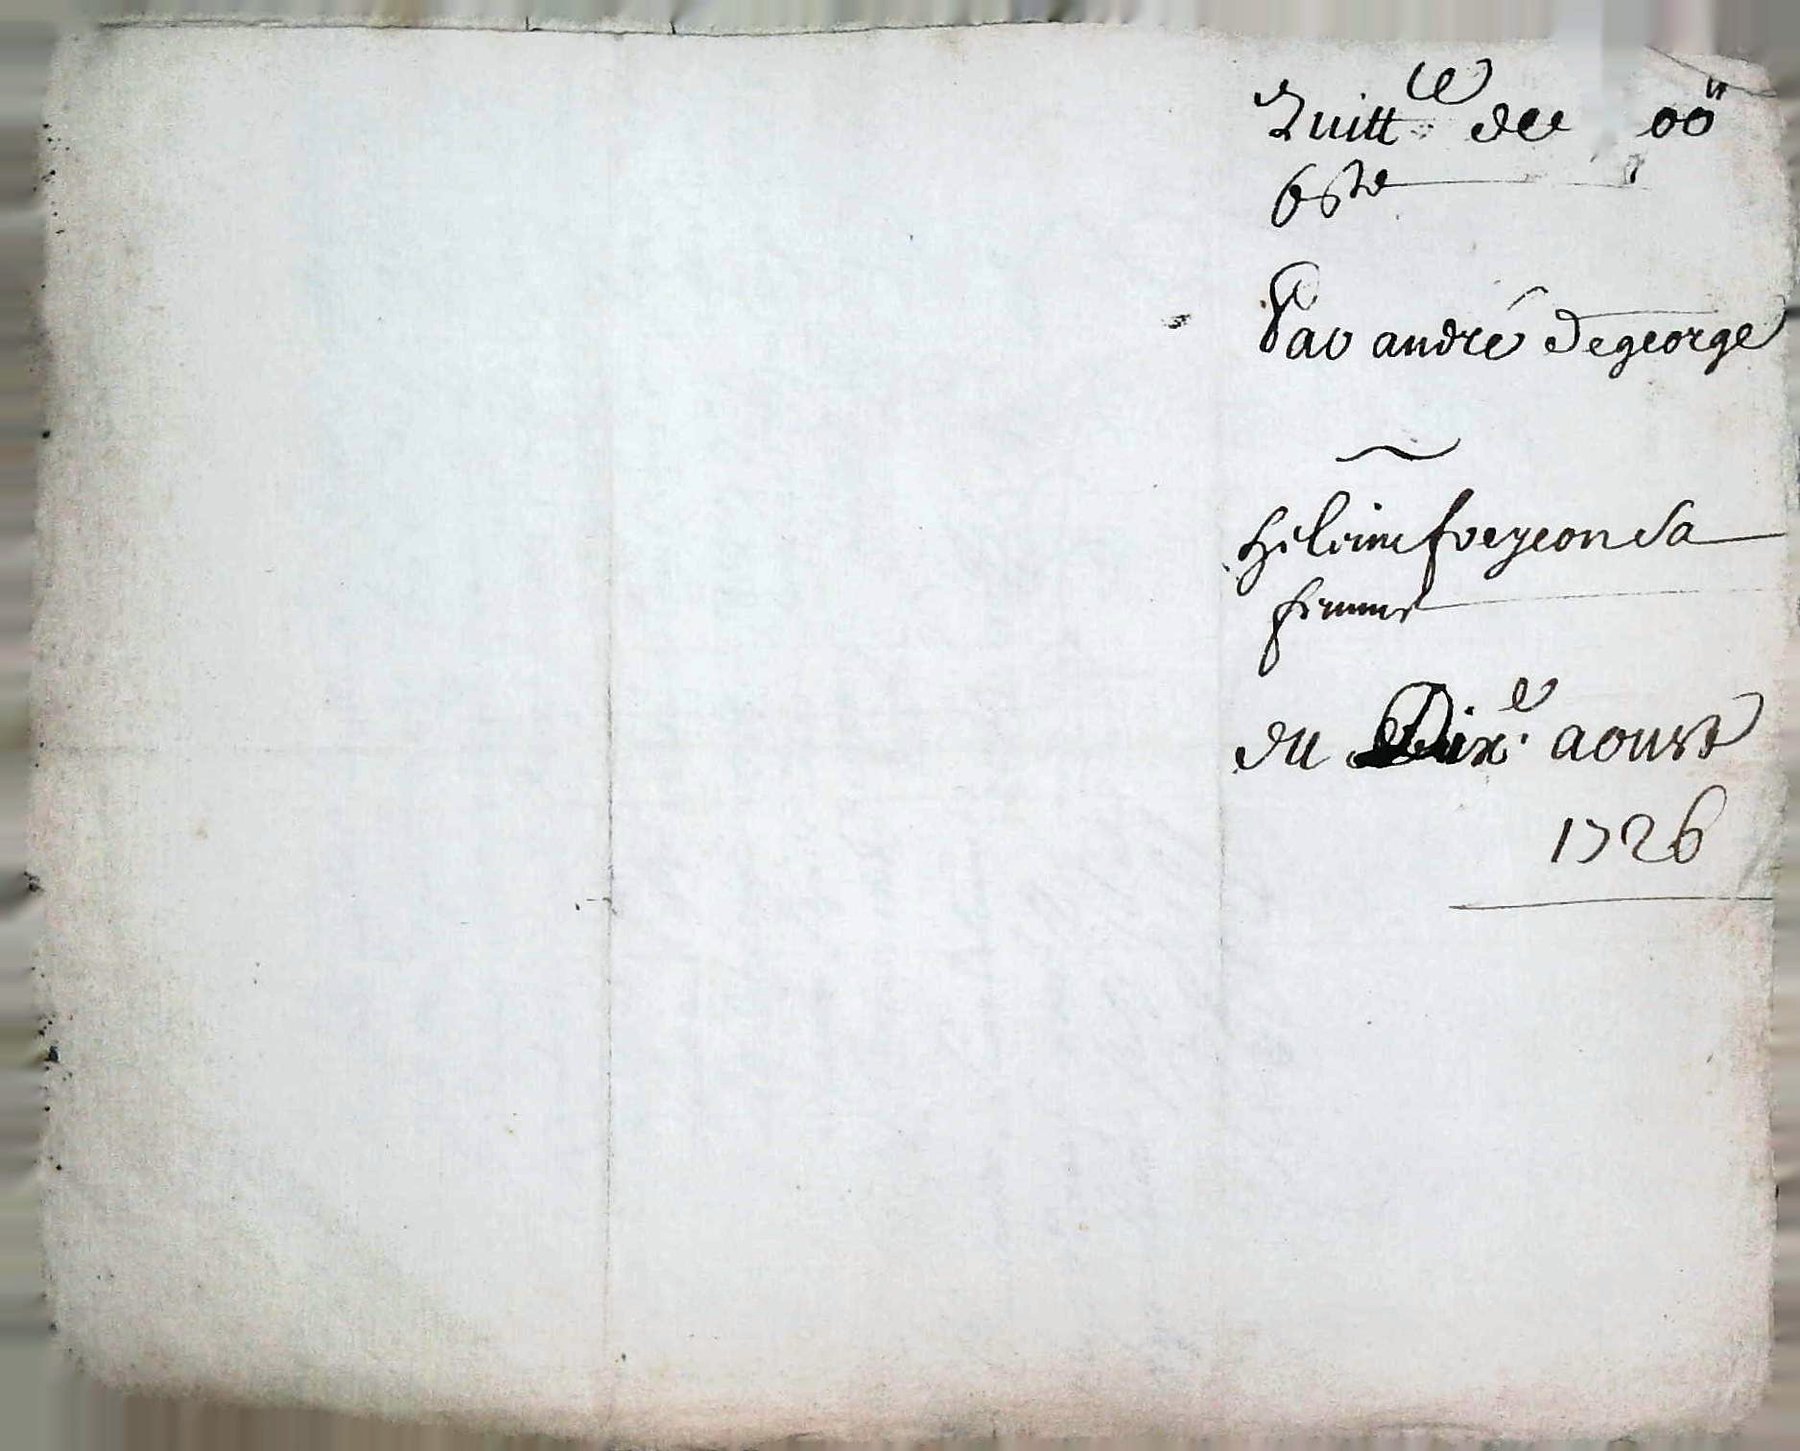 Quitt ce de 00 ᵗᵗ
6 ste
Par andré Degeorge
heleine foryeon sa
femme
du Dix e aoust
1726